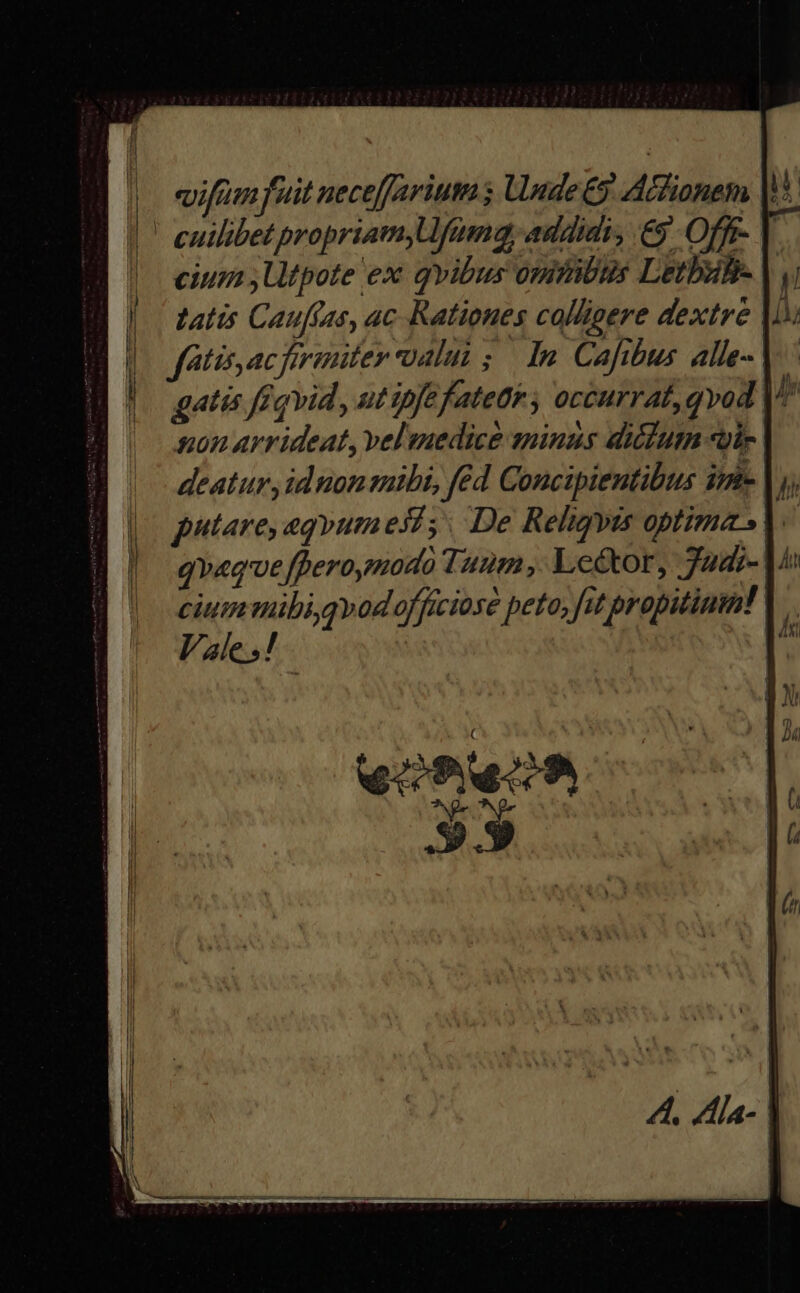 visum fuit necessarium; Unde & Actionem
cuilibet propriam, Usumq; addidi, & Offi-
cium, Utpote ex qvibus omnibus Lethali-
tatis Caussas, ac Rationes colligere dextrè
satis, ac firmiter valui; In Casibus alle-
gatis siqvid, ut ipse fateor, occurrat, qvod
non arrideat, vel medicè minùs dictum vi-
deatur, id non mihi, sed Concipientibus im-
putare, æqvum est; De Reliqvis optima
qvæqve spero, modò Tuum, Lector, Judi-
cium mihi, qvod officiosè peto, sit propitium!
Vale!
A. Ala-